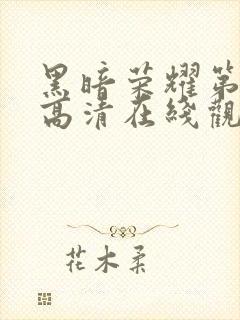 黑暗荣耀第
高清在线觀
花木柔